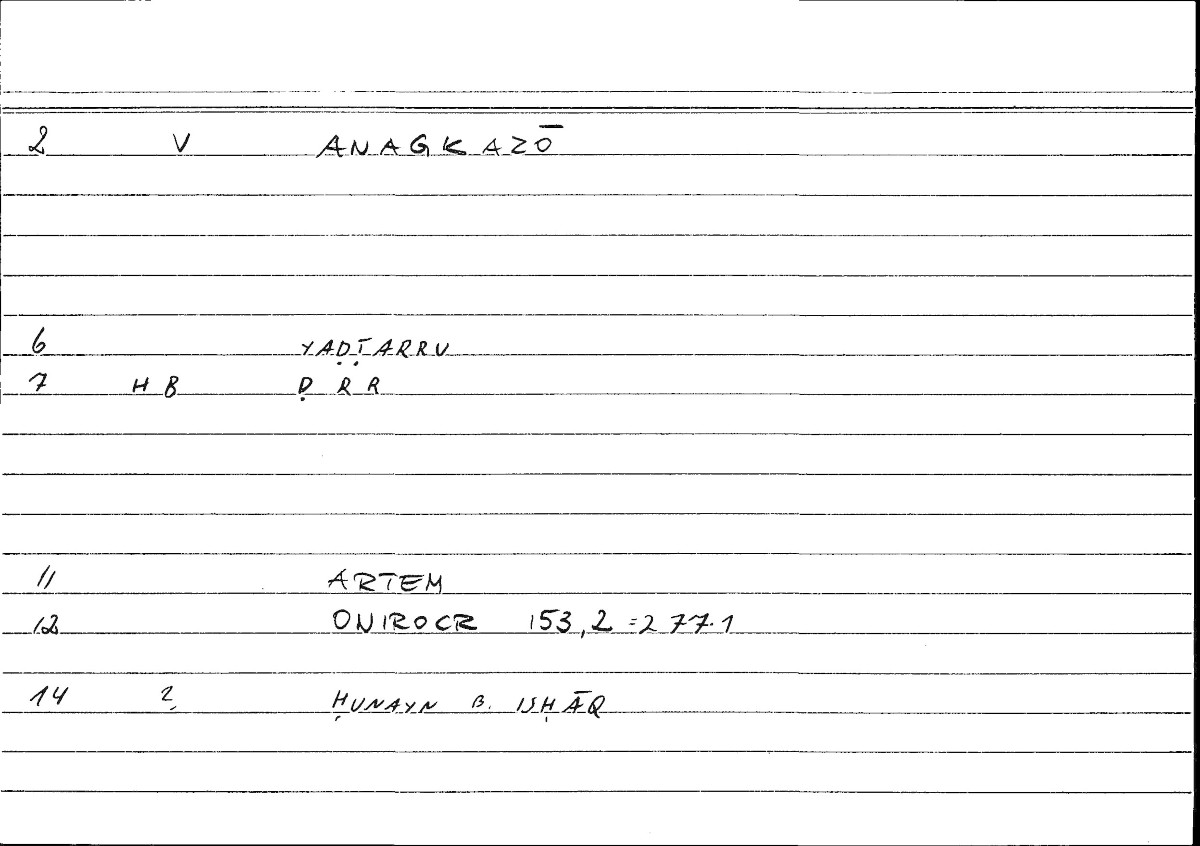 2 V ANAGKAZŌ
6 YAḌṬARRU
7 HB Ḍ R R
11 ARTEM
12 ONIROCR 153,2 = 277.1
14 2 ḤUNAYN B. ISḤĀQ